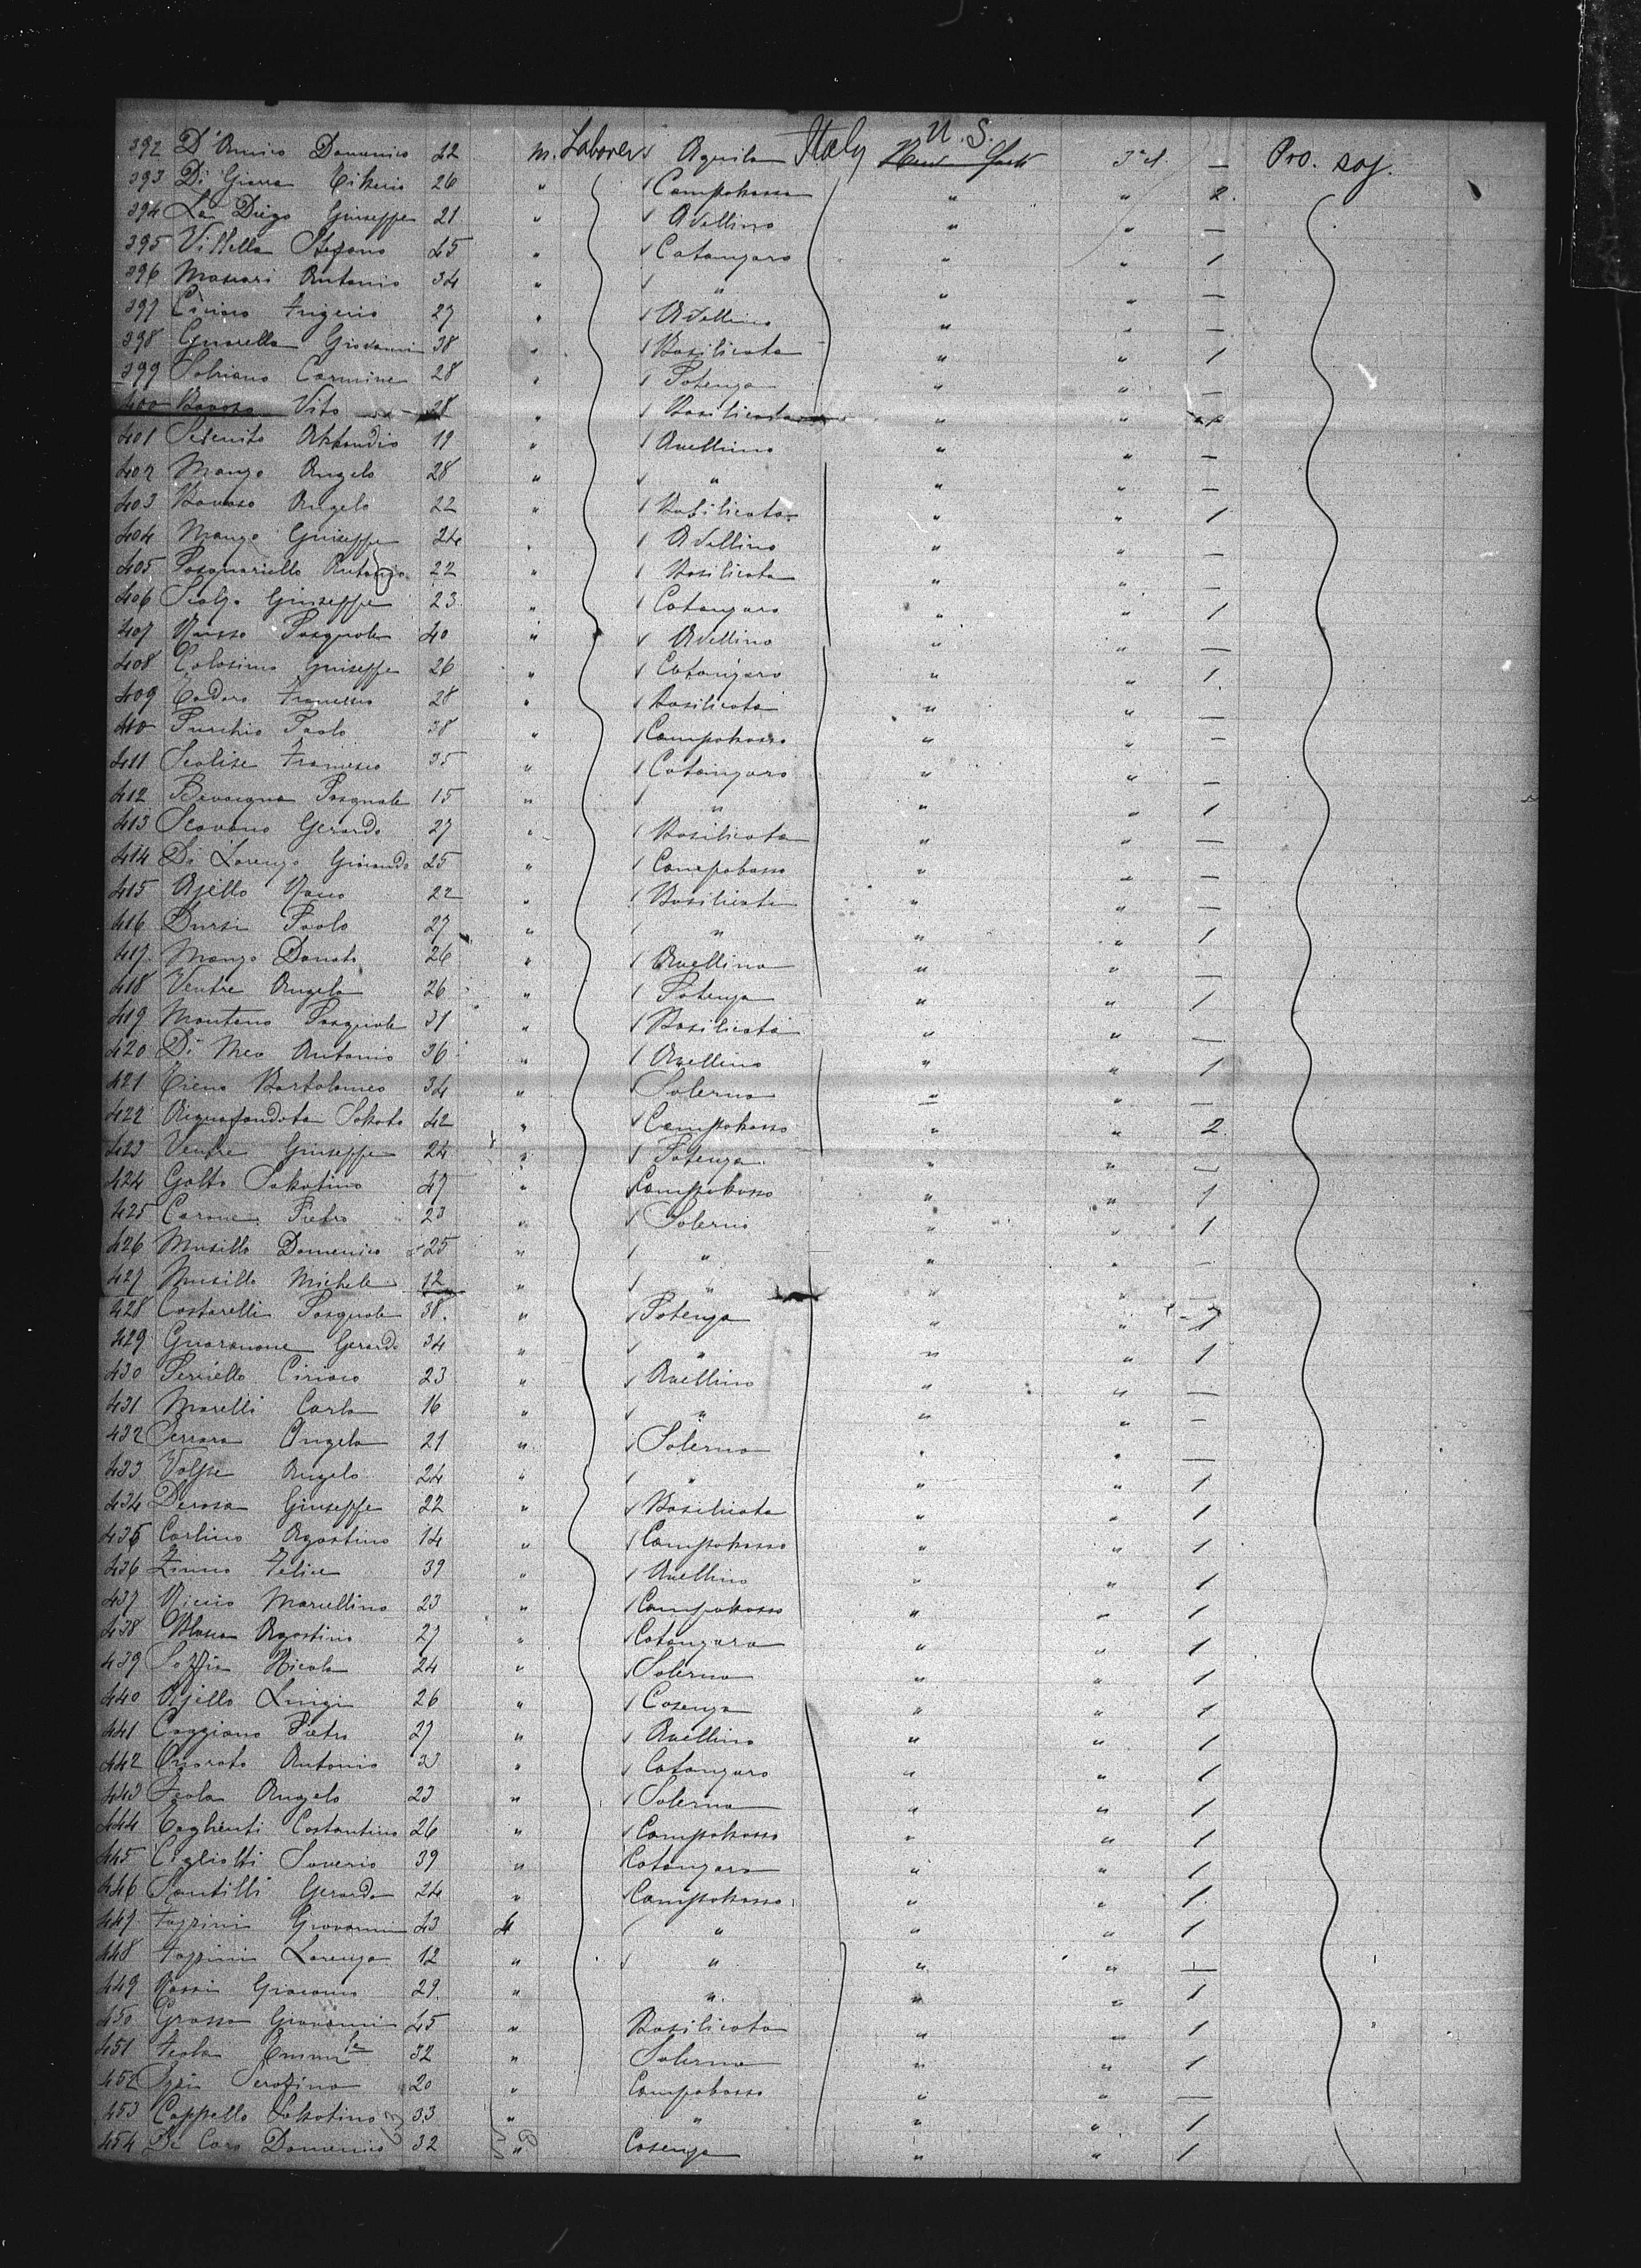 392 D'Amico Domenico 22 m. Laborer Aquila Italy U. S. New York 3 cl. — Pro. soj.
393 Di Giarra 26 " Campobasso " " 2.
394 La Diego Giuseppe 21 " Avellino " " —
395 Vittella Stefano 25 " Catanzaro " " 1
396 Mascari Antonio 34 " " " " —
397 Ciriaco Frigerio 27 " Avellino " " —
398 Guarella Giovanni 38 " Basilicata " " 1
399 Sobriano Carmine 28 " Potenza " " —
400 Barossa Vito 28 " Basilicata " "
401 19 " Avellino " " —
402 Manzo Angelo 28 " " " " —
403 Angelo 22 " Basilicata " " 1
404 Manzo Giuseppe 24 " Avellino " " —
405 Pasquariello Antonio 22 " Basilicata " " —
406 Scalzo Giuseppe 23 " Catanzaro " " 1
407 Russo Pasquale 40 " Avellino " " —
408 Colosimo Giuseppe 26 " Catanzaro " " 1
409 Francesco 28 " Basilicata " " —
410 Purchio Paolo 38 " Campobasso " " —
411 Scalise Francesco 35 " Catanzaro " " —
412 Bevacqua Pasquale 15 " " " " 1
413 Scavano Gerardo 27 " Basilicata " " —
414 Di Lorenzo 25 " Campobasso " " —
415 Ajello Rocco 22 " Basilicata " " —
416 Bursi Paolo 27 " " " " 1
417 Manzo Donato 26 " Avellino " " —
418 Ventre Angelo 26 " Potenza " " 1
419 Montano Pasquale 31 " Basilicata " " —
420 Di Meo Antonio 36 " Avellino " " 1
421 Bartolomeo 34 " Salerno " " —
422 Acquafondata 42 " Campobasso " " 2
423 Ventre Giuseppe 24 " Potenza " " —
424 Gatto Sabatino 47 " Campobasso " " 1
425 Carone Pietro 23 " Salerno " " 1
426 Musillo Domenico 25 " " " " —
427 Musillo Michele 12 " " " " —
428 Costarelli Pasquale 38 " Potenza " " 1
429 Guaranone Gerardo 34 " " " " 1
430 Perriello Ciriaco 23 " Avellino " " —
431 Morelli Carlo 16 " " " " —
432 Ferrara Angelo 21 " Salerno " " —
433 Volpe Angelo 24 " " " " 1
434 Derosa Giuseppe 22 " Basilicata " " 1
435 Carlino Agostino 14 " Campobasso " " 1
436 Felice 39 " Avellino " " 1
437 Riccio Marcellino 23 " Campobasso " " 1
438 Agostino 27 " Catanzaro " " 1
439 Nicola 24 " Salerno " " 1
440 Ajello Luigi 26 " Cosenza " " 1
441 Caggiano Pietro 27 " Avellino " " 1
442 Antonio 33 " Catanzaro " " 1
443 Feola Angelo 23 " Salerno " " 1
444 Costantino 26 " Campobasso " " 1
445 Cigliotti Saverio 39 " Catanzaro " " 1
446 Santilli Gerardo 24 " Campobasso " " 1
447 Giovanni 43 " " " " 1
448 Lorenzo 12 " " " " —
449 Rossi Giacomo 29 " " " " 1
450 Grasso Giovanni 45 " Basilicata " " 1
451 Feola 32 " Salerno " " 1
452 Serafino 20 " Campobasso " " —
453 Cappello Sabatino 33 " " " " 1
454 De Caro Domenico 32 " Cosenza " " 1